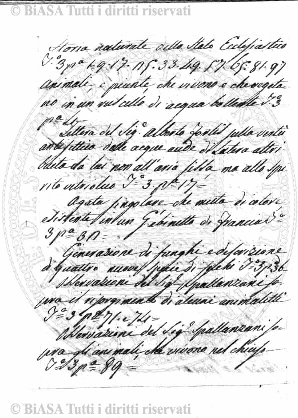 © BIASA Tutti i diritti riservati
Storia naturale dello Stato Ecclesiastico
T.º 3 pª 1.9.17. 25.33.49.57.65.81.97
Animali, e piante, che vivono e che vegeta
no in un vulcullo di acqua bollente T.º 3
pª
Lettera del Sigʳ Alberto Fortis sulla virtù
antisettica delle acque
da lui non all'aria fissa ma allo spi
rito T.º 3 pª 17=
Agata singolare che muta di colore
esistente in un Gabinetto di Francia T.º
3 pª 31=
Generazione di funghi e descrizione
di quattro nuove specie di T.º 3 pª 36
Osservazione del Sigʳ Spallanzani so
pra il risorgimento di alcuni animaletti
T.º 3 pª 71. e 74=
Osservazioni del Sigʳ Spallanzani so
pra gli animali che vivono nel chiuso
T.º 3 pª 89=
© BIASA Tutti i diritti riservati